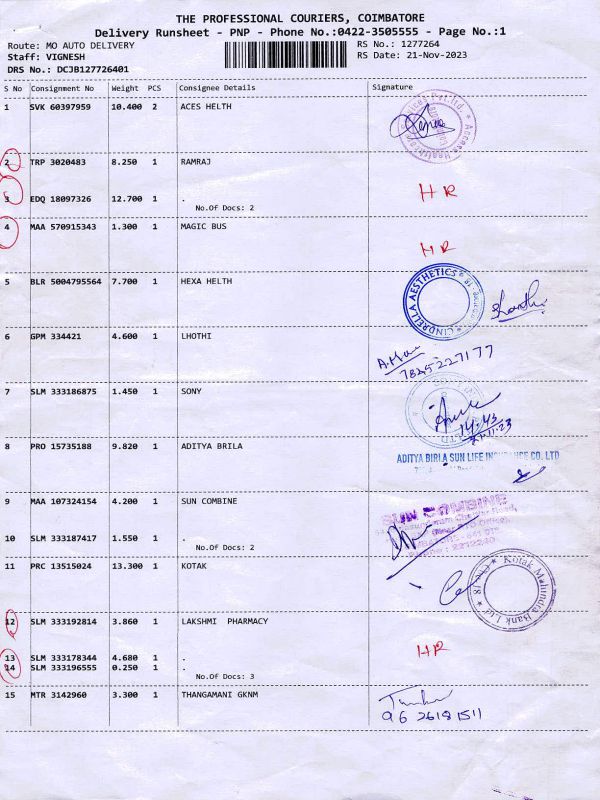 THE PROFESSIONAL COURIERS, COIMBATORE
Delivery Runsheet - PNP - Phone No.:0422-3505555 - Page No.:1
Route: MO AUTO DELIVERY RS No.: 1277264
Staff: VIGNESH RS Date: 21-Nov-2023
DRS No.: DCJB127726401
S No Consignment No Weight PCS Consignee Details Signature
1 SVK 60397959 10.400 2 ACES HELTH
2 TRP 3020483 8.250 1 RAMRAJ
3 EDQ 18097326 12.700 1 . HR
No.Of Docs: 2
4 MAA 570915343 1.300 1 MAGIC BUS
HR
5 BLR 5004795564 7.700 1 HEXA HELTH
CINDRELLA AESTHETICS
6 GPM 334421 4.600 1 LHOTHI
7825227177
7 SLM 333186875 1.450 1 SONY
14:43
21.11.23
8 PRO 15735188 9.820 1 ADITYA BRILA
ADITYA BIRLA SUN LIFE INSURANCE CO. LTD
9 MAA 107324154 4.200 1 SUN COMBINE
SUN COMBINE
10 SLM 333187417 1.550 1 .
No.Of Docs: 2
11 PRC 13515024 13.300 1 KOTAK
Kotak Mahindra Bank Ltd
12 SLM 333192814 3.860 1 LAKSHMI PHARMACY
HR
13 SLM 333178344 4.680 1 .
14 SLM 333196555 0.250 1 .
No.Of Docs: 3
15 MTR 3142960 3.300 1 THANGAMANI GKNM
96 26181511